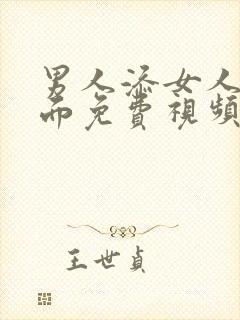 男人添女人
而免費視頻
王世貞